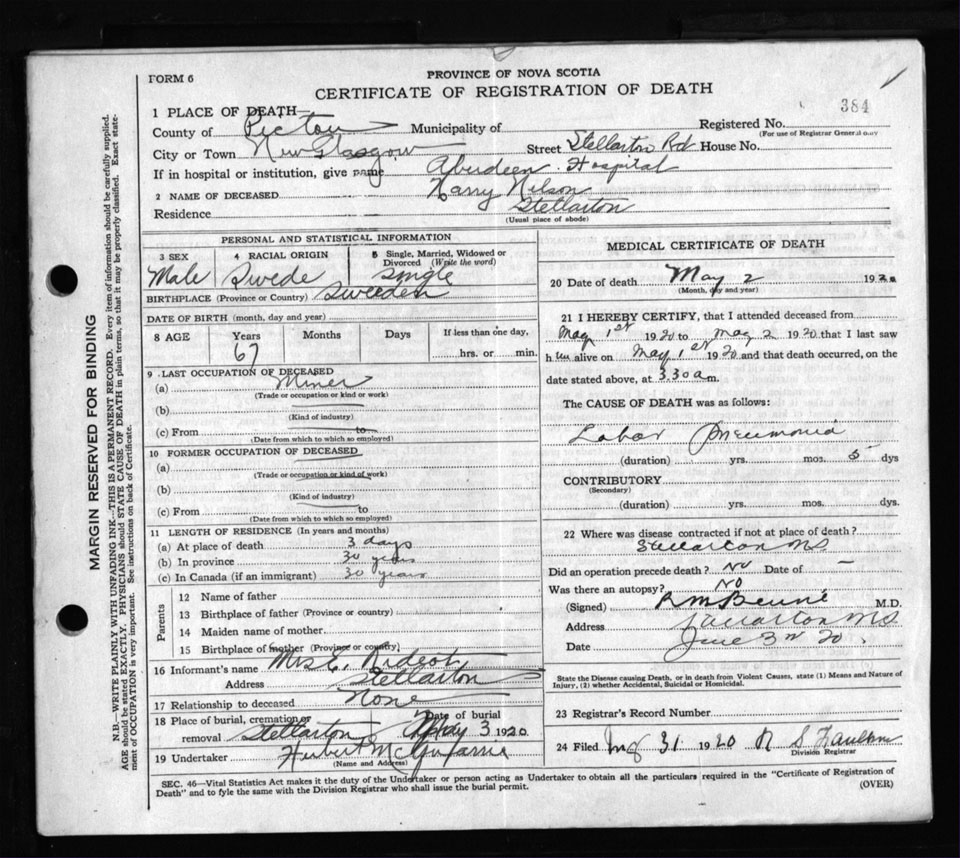 PROVINCE OF NOVA SCOTIA
FORM 6
CERTIFICATE OF REGISTRATION OF DEATH
384
1 PLACE OF DEATH—
Registered No.
(For use of Registrar General only
County of Pictou Municipality of
City or Town New Glasgow Street Stellarton Rd House No.
If in hospital or institution, give name Aberdeen Hospital
2 NAME OF DECEASED Harry Nilson
Residence Stellarton
(Usual place of abode)
PERSONAL AND STATISTICAL INFORMATION
3 SEX 4 RACIAL ORIGIN 5 Single, Married, Widowed or Divorced (Write the word)
Male Swede single
BIRTHPLACE (Province or Country) Sweden
DATE OF BIRTH (month, day and year)
8 AGE Years Months Days If less than one day,
67 hrs. or min.
9 LAST OCCUPATION OF DECEASED
(a) Miner
(Trade or occupation or kind or work)
(b)
(Kind of industry)
(c) From to
(Date from which to which so employed)
10 FORMER OCCUPATION OF DECEASED
(a)
(Trade or occupation or kind of work)
(b)
(Kind of industry)
(c) From to
(Date from which to which so employed)
11 LENGTH OF RESIDENCE (In years and months)
(a) At place of death 3 days
(b) In province 30 years
(c) In Canada (if an immigrant) 30 years
Parents
12 Name of father
13 Birthplace of father (Province or country)
14 Maiden name of mother
15 Birthplace of mother (Province or country)
16 Informant's name Mrs E.
Address Stellarton
17 Relationship to deceased None
18 Place of burial, cremation or removal Stellarton Date of burial May 3 1920
19 Undertaker Hubert
(Name and Address)
MEDICAL CERTIFICATE OF DEATH
20 Date of death May 2 192
(Month, day and year)
21 I HEREBY CERTIFY, that I attended deceased from
May 1st 1920 to May 2 1920 that I last saw
h im alive on May 1st 1920 and that death occurred, on the
date stated above, at 3.30 a m.
The CAUSE OF DEATH was as follows:
Lobar Pneumonia
(duration) yrs. mos. 5 dys
CONTRIBUTORY
(Secondary)
(duration) yrs. mos. dys.
22 Where was disease contracted if not at place of death?
Stellarton N.S.
Did an operation precede death? No Date of —
Was there an autopsy? No
(Signed) R M Benvie M.D.
Address Stellarton N.S.
Date June 3rd 20
State the Disease causing Death, or in death from Violent Causes, state (1) Means and Nature of
Injury, (2) whether Accidental, Suicidal or Homicidal.
23 Registrar's Record Number
24 Filed 31 1920
Division Registrar
SEC. 46—Vital Statistics Act makes it the duty of the Undertaker or person acting as Undertaker to obtain all the particulars required in the "Certificate of Registration of
Death" and to fyle the same with the Division Registrar who shall issue the burial permit.
(OVER)
MARGIN RESERVED FOR BINDING
N.B.—WRITE PLAINLY WITH UNFADING INK—THIS IS A PERMANENT RECORD. Every item of information should be carefully supplied.
AGE should be stated EXACTLY. PHYSICIANS should STATE CAUSE OF DEATH in plain terms, so that it may be properly classified. Exact state-
ment of OCCUPATION is very important. See instructions on back of Certificate.